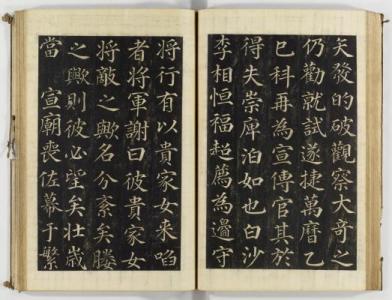 矢發的破觀察大奇之
仍勸就試遂捷萬曆乙
已科再為宣傳官其於
得失崇庳泊如也白沙
李相恒福超薦為邊守
將行有以貴家女來啗
者將軍謝曰彼貴家女
將敵之歟名分紊矣媵
之歟則彼必望矣壯歲
當宣廟喪佐幕于繁